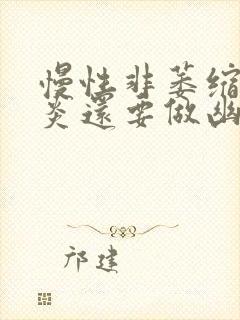 慢性非萎缩
炎还要做幽
邝建